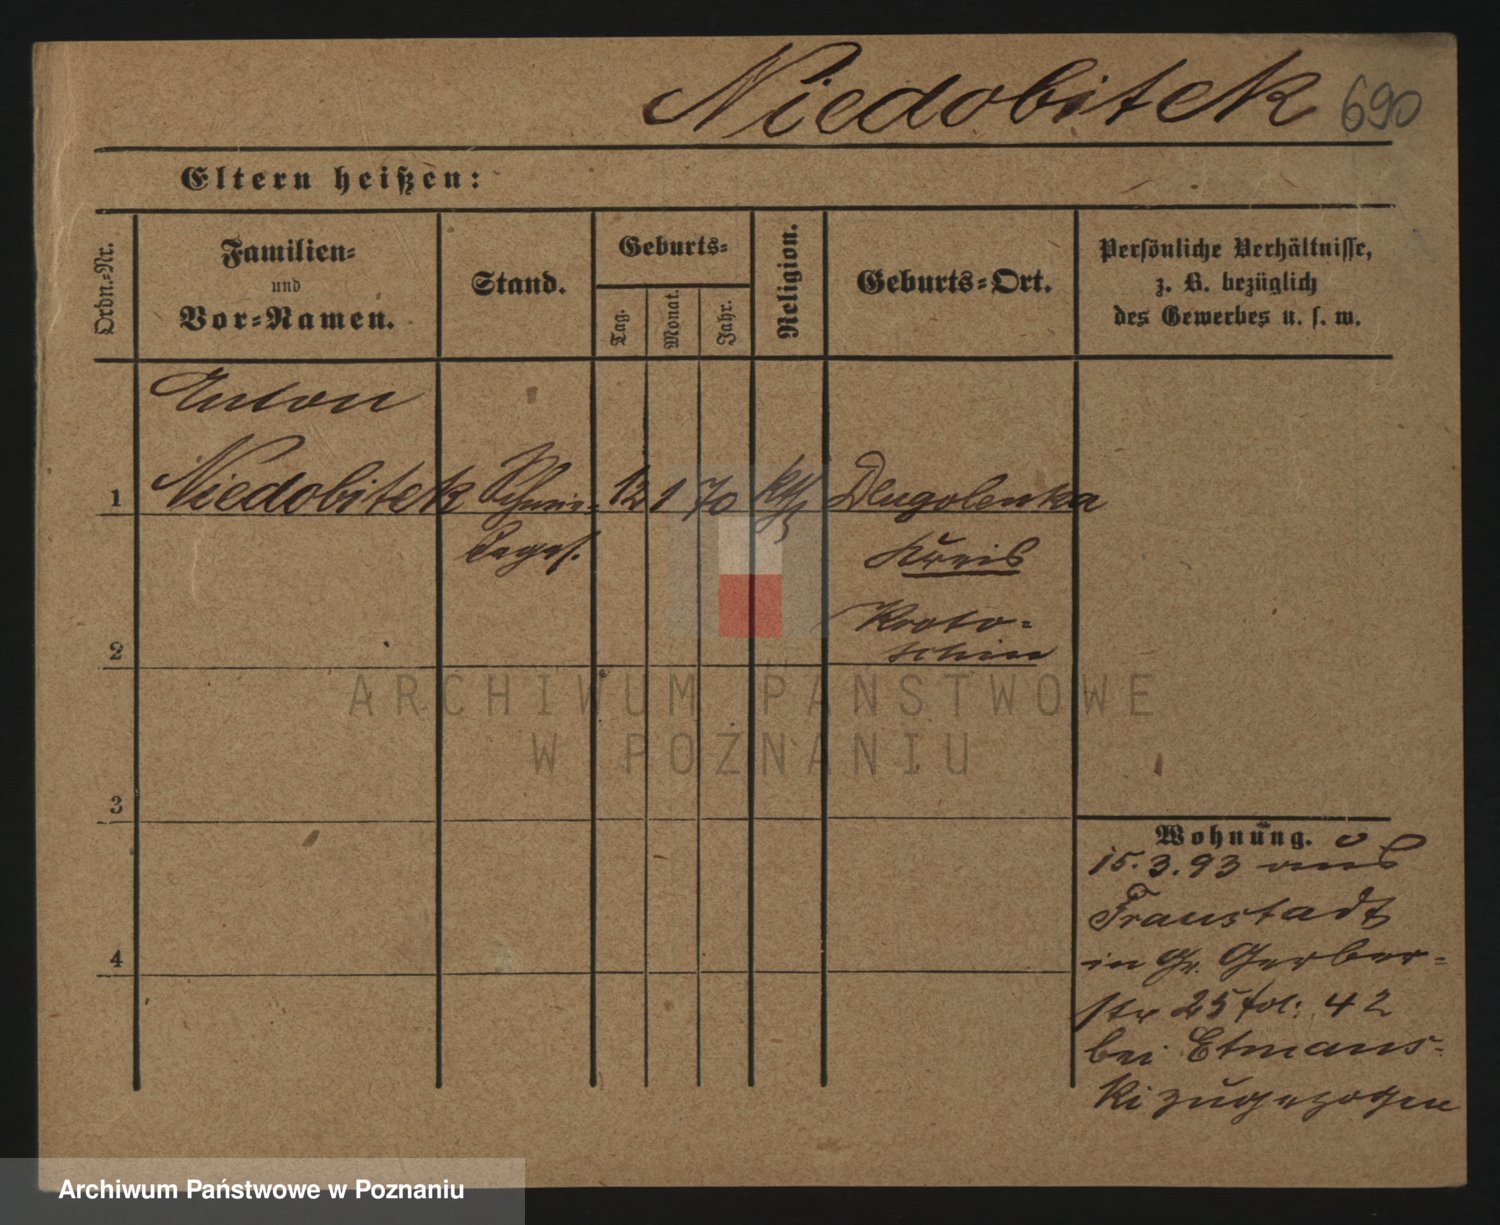 Niedobitek 690
Eltern heißen:
Ordn.-Nr.
Familien-
und
Vor-Namen.
Stand.
Geburts-
Tag.
Monat.
Jahr.
Religion.
Geburts-Ort.
Persönliche Verhältnisse,
z. B. bezüglich
des Gewerbes u. s. w.
Anton
1 Niedobitek Schmie- 12 1 70 kth Dlugolenka
degs.
Kreis
Kroto-
schin
2
3
4
Wohnung.
15.3.93 aus
Fraustadt
in Gr. Gerber-
str 25 fol: 42
bei Etmans-
ki zugezogen
ARCHIWUM PAŃSTWOWE
W POZNANIU
Archiwum Państwowe w Poznaniu